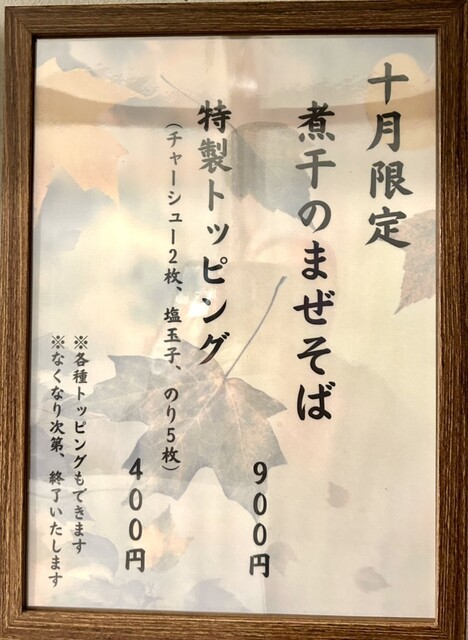 十月限定
煮干のまぜそば
９００円
特製トッピング
（チャーシュー2枚、塩玉子、のり５枚）
４００円
※各種トッピングもできます
※なくなり次第、終了いたします